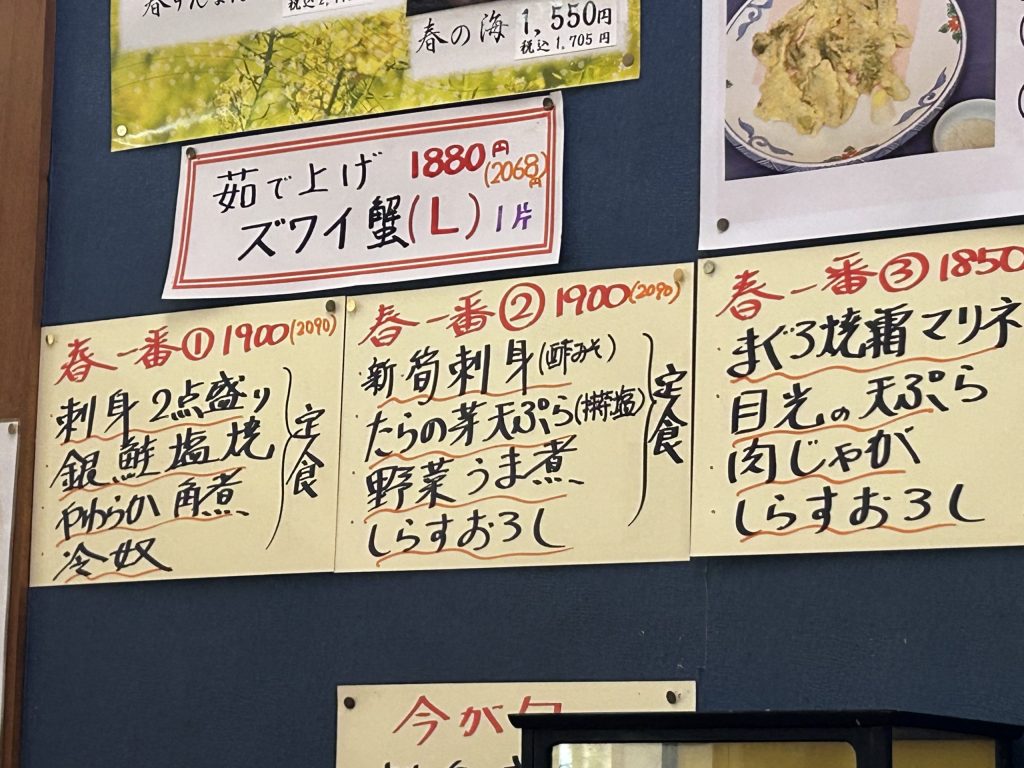 春の海 1,550円
税込 1,705円
茹で上げ 1880円(2068円)
ズワイ蟹(L) 1片
春一番① 1900(2090)
・刺身2点盛り
・銀鮭塩焼
・やわらか角煮
・冷奴
定食
春一番② 1900(2090)
・新筍刺身(酢みそ)
・たらの芽天ぷら(抹茶塩)
・野菜うま煮
・しらすおろし
定食
春一番③ 1850
・まぐろ焼霜マリネ
・目光の天ぷら
・肉じゃが
・しらすおろし
今が旬